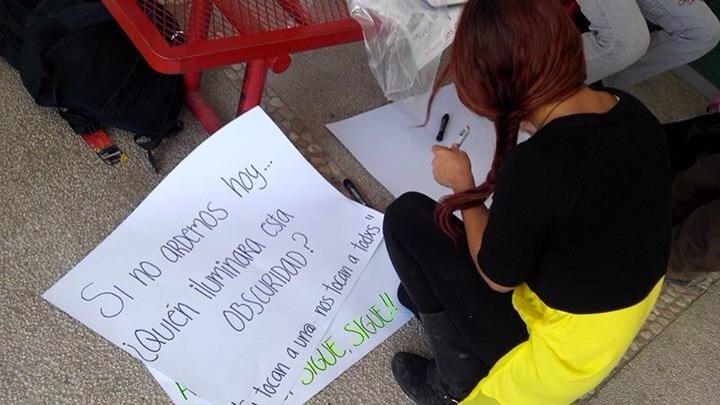 Si no ardemos hoy...
¿Quién iluminara esta
obscuridad?
tocan a una nos tocan a todxs"
SIGUE, SIGUE!!